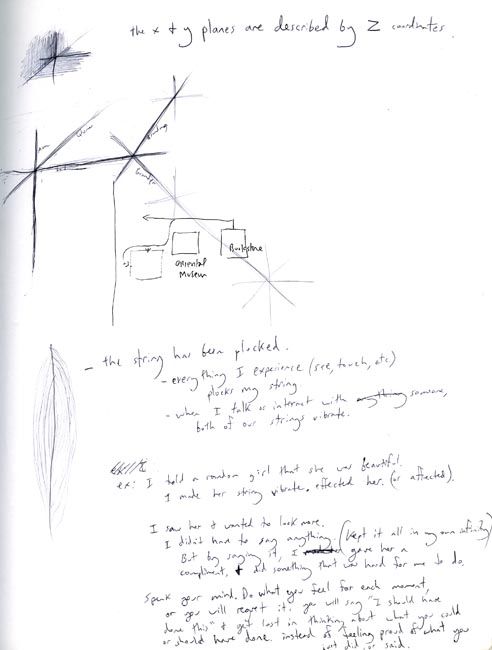 the x & y planes are described by Z coordinates.
Oriental
Museum
- the string has been plucked.
- everything I experience (see, touch, etc)
plucks my string
- when I talk or interact with anything someone,
both of our strings vibrate.
ex: I told a random girl that she was beautiful.
I made her string vibrate. effected her. (or affected).
I saw her & wanted to look more.
I didn't have to say anything. (kept it all in my own infinity)
But by saying it, I gave her a
compliment, & did something that was hard for me to do.
Speak your mind. Do what you feel for each moment,
or you will regret it. you will say "I should have
done this" & get lost in thinking about what you could
or should have done. instead of feeling proud of what you
just did or said.